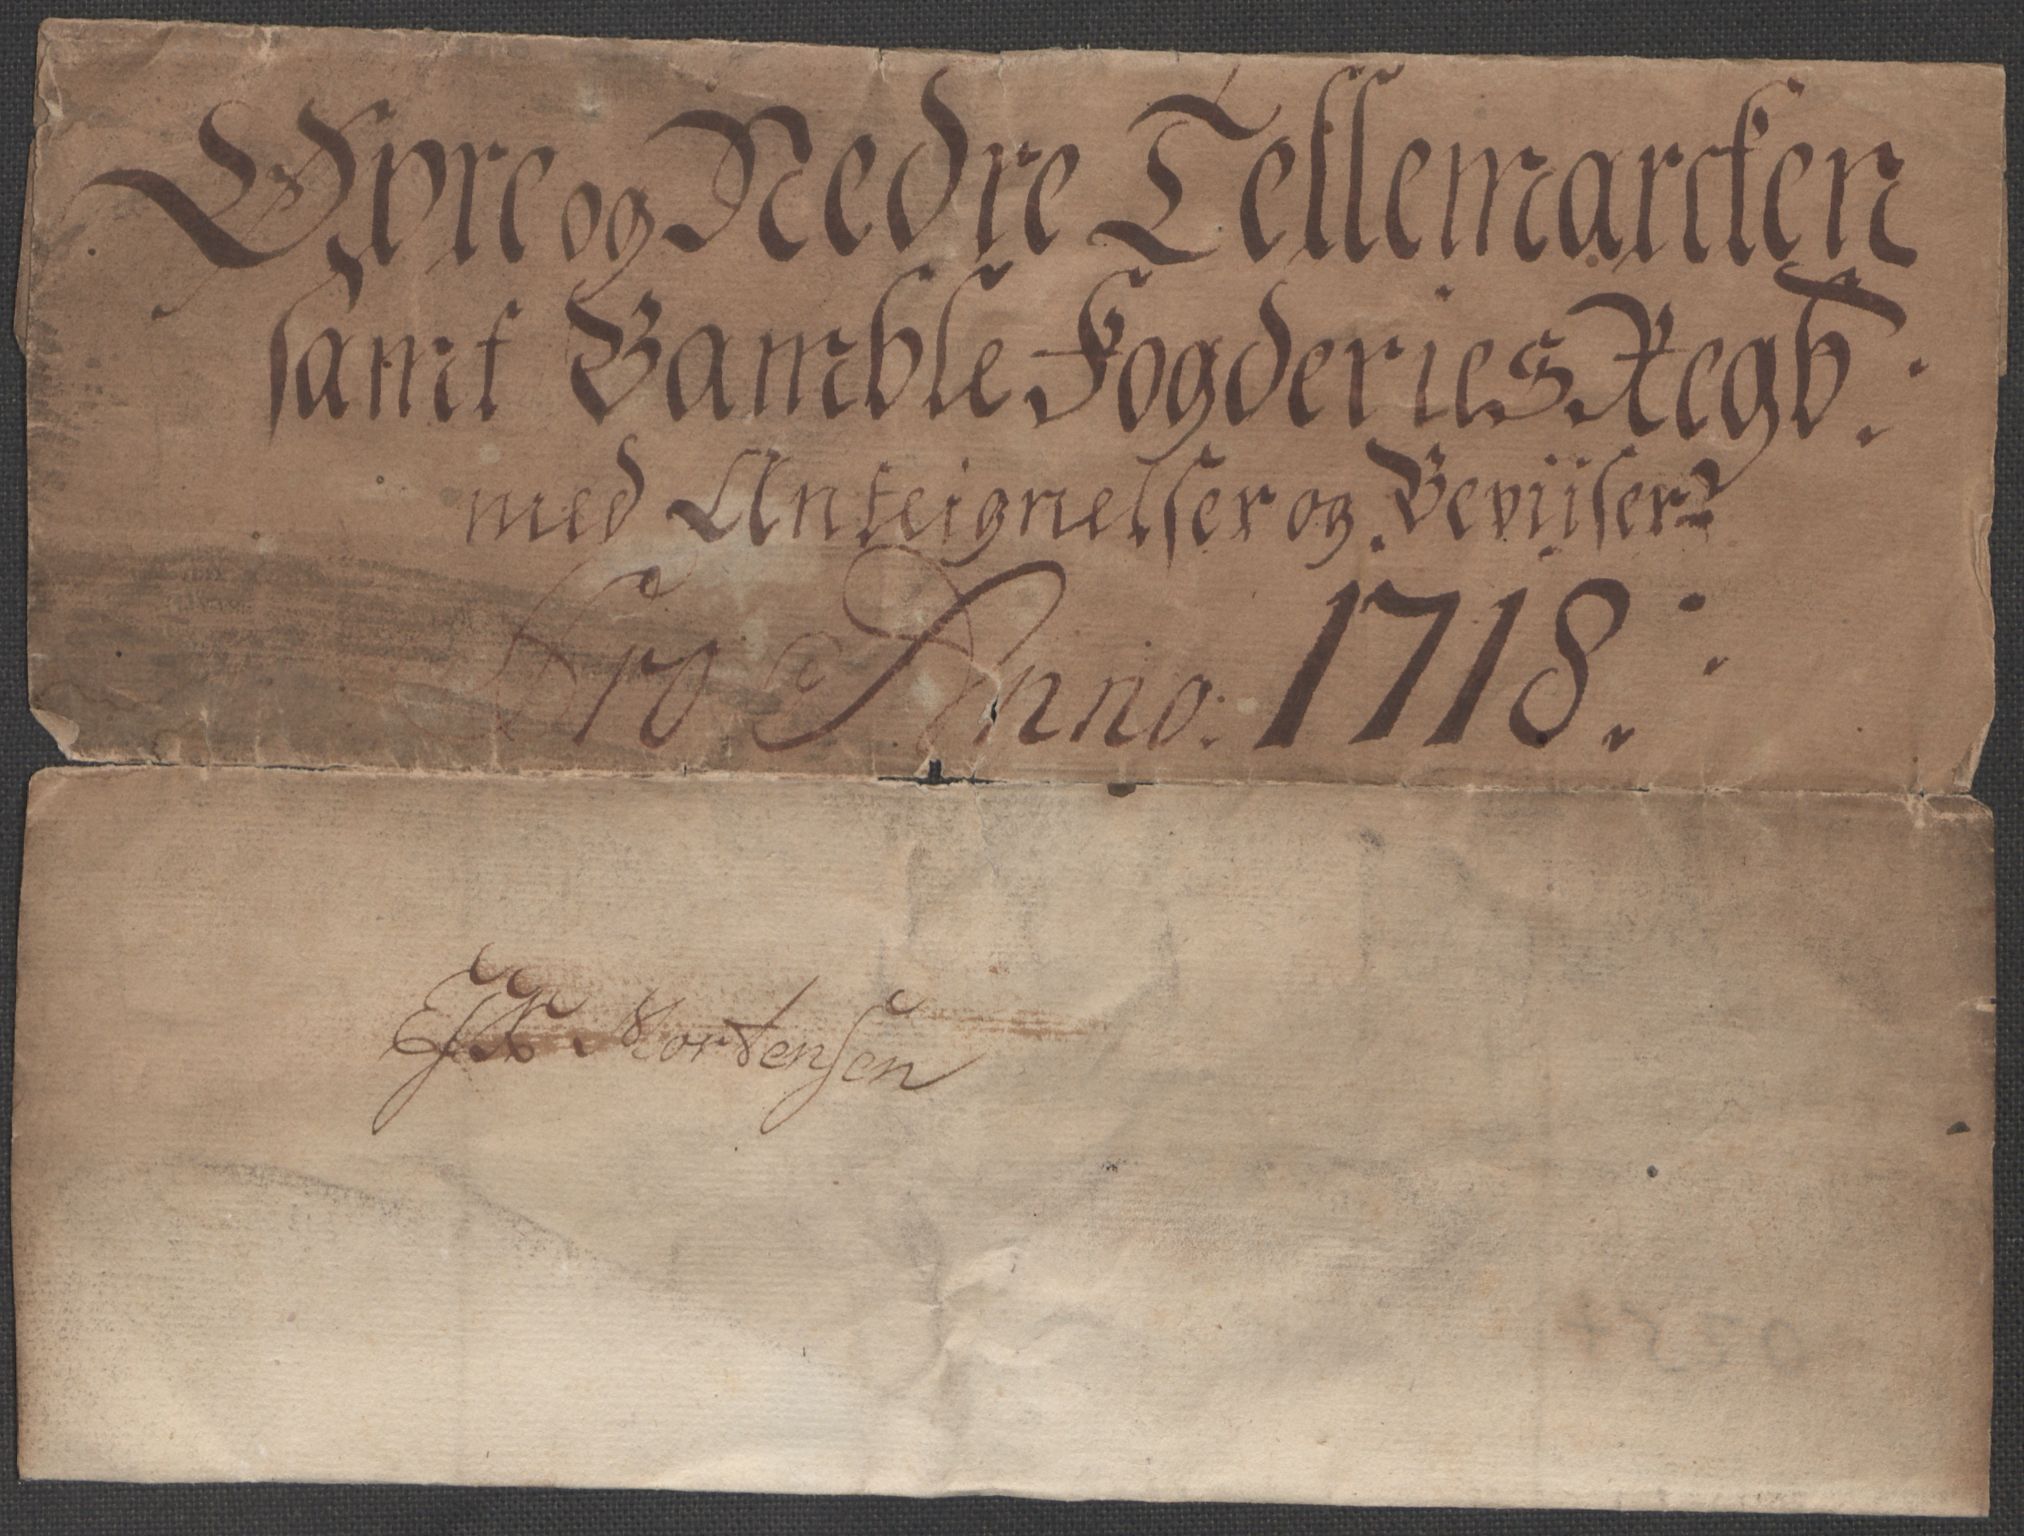 Øvre og Nedre Tellemarcken
samt Bamble Fogderies Regb:
med Anteignelser og Beviiser
Pro Anno: 1718.
Mortensen